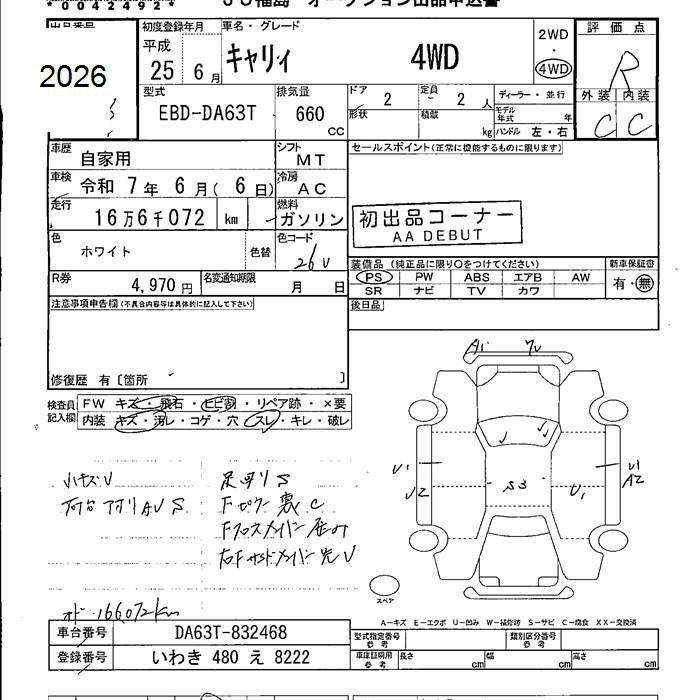 *00424924*
JU福島 オークション出品申込書
出品番号
2026
初度登録年月
平成 25年 6月
車名・グレード
キャリィ 4WD
2WD
・
4WD
評価点
R
外装 内装
C C
型式
EBD-DA63T
排気量
660 cc
ドア 2
形状
定員 2 人
積載 kg
ディーラー・並行
モデル年式 年
ハンドル 左・右
車歴 自家用
シフト MT
セールスポイント(正常に機能するものに限ります)
車検 令和 7年 6月( 6日)
冷房 AC
走行 16万6千072 km
燃料 ガソリン
初出品コーナー
AA DEBUT
色 ホワイト 色替
色コード 26U
R券 4,970円
名変通知期限 月 日
装備品(純正品に限り○をつけてください)
PS PW ABS エアB AW
SR ナビ TV カワ
新車保証書
有・無
注意事項申告欄(不具合内容等は具体的に記入して下さい)
後日品
修復歴 有〔箇所 〕
検査員記入欄
FW キズ・飛石・ヒビ割・リペア跡・×要
内装 キズ・汚レ・コゲ・穴・スレ・キレ・破レ
A1
小キズU
荷台アオリAUS
足回りS
Fピラー裏C
Fクロスメンバー歪み
右Fサイドメンバー先U
U1
U2
S3
U1
U1
A2
スペア
オド 166,072km
A-キズ E-エクボ U-凹み W-補修跡 S-サビ C-腐食 XX-交換済
車台番号 DA63T-832468
型式指定番号 参考
類別区分番号 参考
登録番号 いわき 480 え 8222
車庫証明用 参考
長さ cm 幅 cm 高さ cm